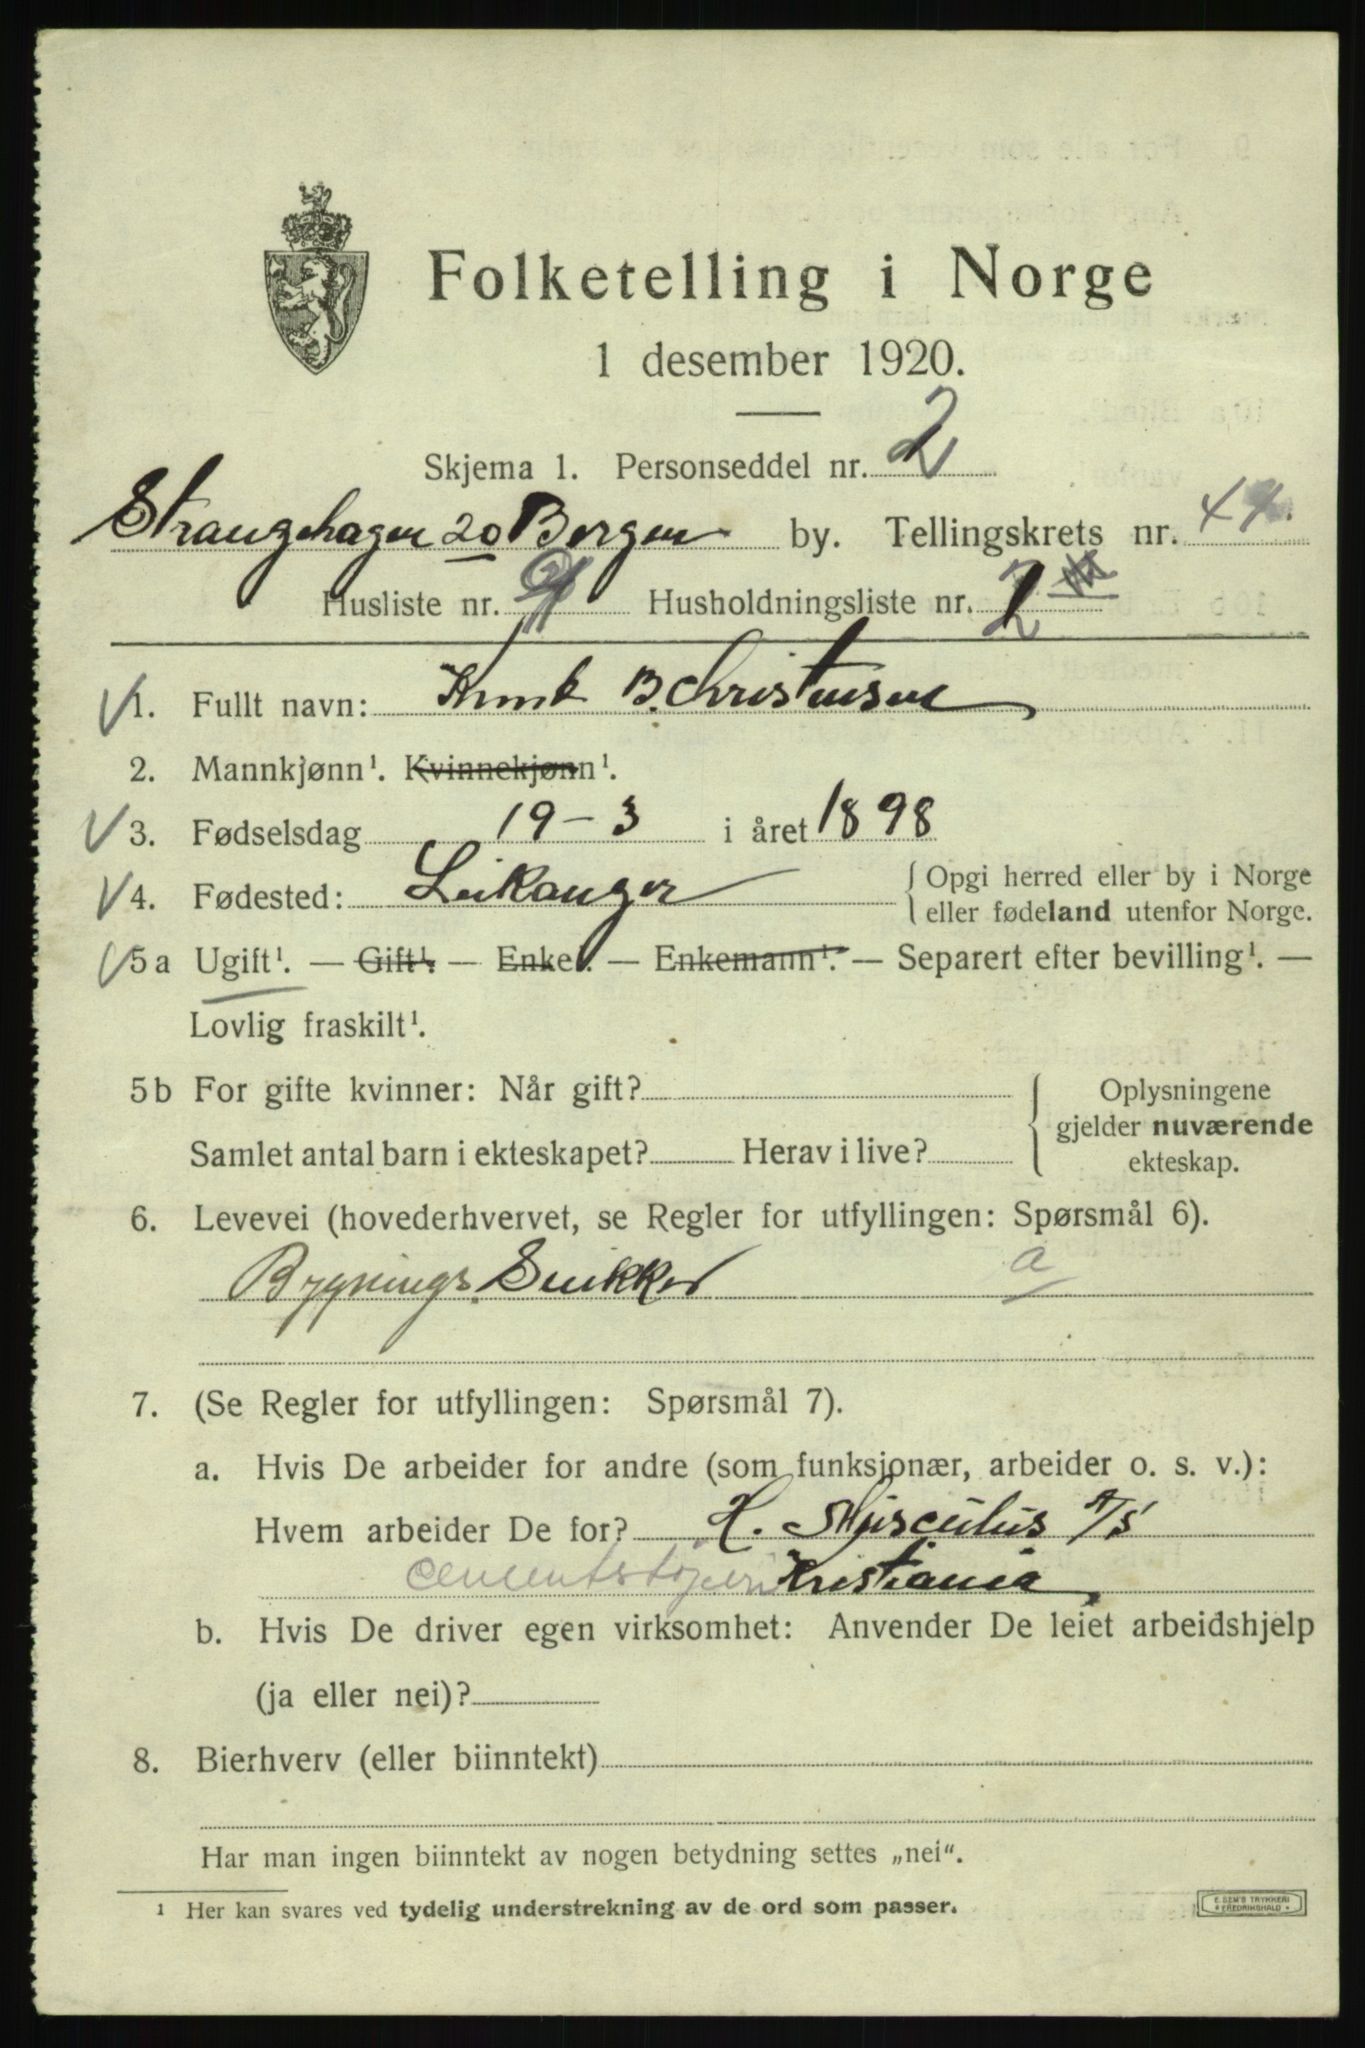 Folketelling i Norge
1 desember 1920.
Skjema 1. Personseddel nr. 2
Strangehagen 20 Bergen by. Tellingskrets nr. 44
Husliste nr. Husholdningsliste nr. 2
1. Fullt navn: B. Christensen
2. Mannkjønn¹. Kvinnekjønn¹.
3. Fødselsdag 19-3 i året 1898
4. Fødested: Leikanger { Opgi herred eller by i Norge
eller fødeland utenfor Norge.
5a Ugift¹. — Gift¹. — Enke¹. — Enkemann¹. — Separert efter bevilling¹. —
Lovlig fraskilt¹.
5b For gifte kvinner: Når gift? { Oplysningene
gjelder nuværende
Samlet antal barn i ekteskapet? Herav i live?
ekteskap.
6. Levevei (hovederhvervet, se Regler for utfyllingen: Spørsmål 6).
Bygnings Snikker a
7. (Se Regler for utfyllingen: Spørsmål 7).
a. Hvis De arbeider for andre (som funksjonær, arbeider o. s. v.):
Hvem arbeider De for? H. Musculus A/S
cementstøperi Kristiania
b. Hvis De driver egen virksomhet: Anvender De leiet arbeidshjelp
(ja eller nei)?
8. Bierhverv (eller biinntekt)
Har man ingen biinntekt av nogen betydning settes „nei“.
¹ Her kan svares ved tydelig understrekning av de ord som passer.
E. SEM'S TRYKKERI
FREDRIKSHALD